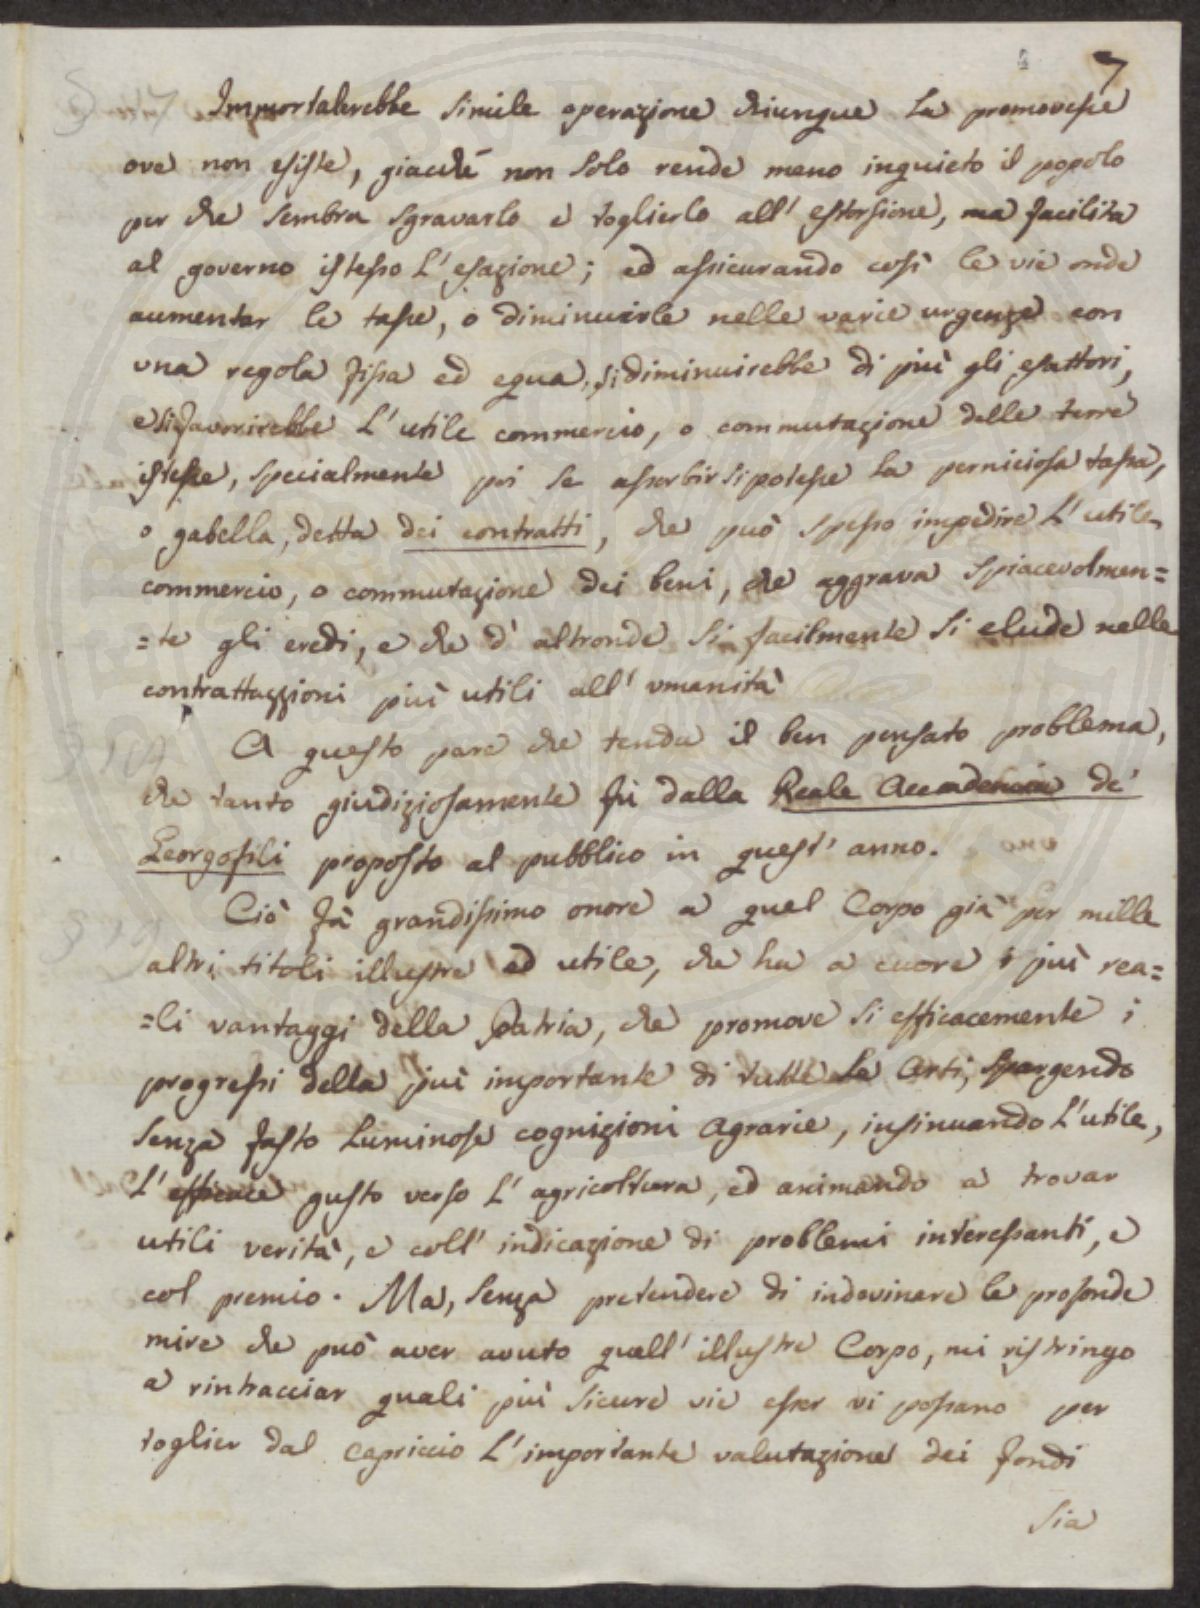 7
Immortalerebbe simile operazione chiunque la promovesse
ove non esiste, giacchè non solo rende meno inquieto il popolo
per che sembra sgravarlo e toglierlo all' estorsione, ma facilita
al governo istesso l'esazione; ed assicurando così le vie onde
aumentar le tasse, o diminuirle nelle varie urgenze con
una regola fissa ed equa, si diminuirebbe di più gli esattori,
e si favorirebbe l'utile commercio, o commutazione delle terre
istesse, specialmente poi se assorbir si potesse la perniciosa tassa,
o gabella, detta dei contratti, che può spesso impedire l'utile
commercio, o commutazione dei beni, che aggrava spiacevolmen=
=te gli eredi, e che d'altronde si facilmente si elude nelle
contrattazzioni più utili all' umanità
A questo pare che tenda il ben pensato problema,
che tanto giudiziosamente fù dalla Reale Accademia de'
Georgofili proposto al pubblico in quest' anno.
Ciò fà grandissimo onore a quel Corpo già per mille
altri titoli illustre ed utile, che ha a cuore i più rea=
=li vantaggi della Patria, che promove si efficacemente i
progressi della più importante di tutte le Arti, spargendo
senza fasto luminose cognizioni Agrarie, insinuando l'utile,
l'efficace gusto verso l'agricoltura, ed animando a trovar
utili verità, e coll' indicazione di problemi interessanti, e
col premio. Ma, senza pretendere di indovinare le profonde
mire che può aver avuto quell' illustre Corpo, mi ristringo
a rintracciar quali più sicure vie esser vi possano per
toglier dal capriccio l'importante valutazione dei fondi
sia